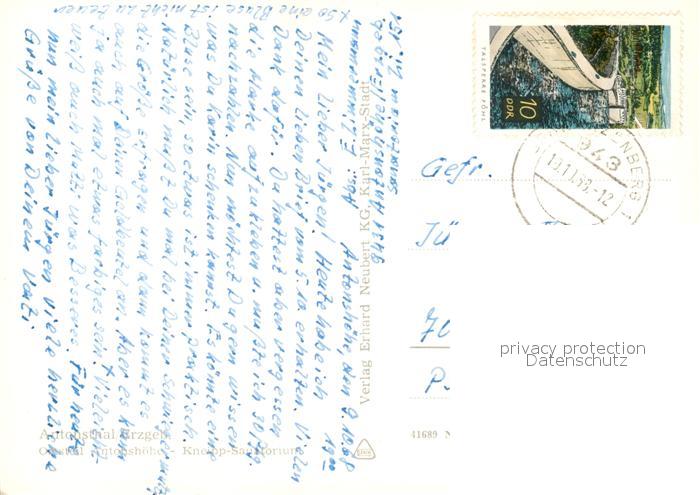 x So eine Bluse, ist nicht zu teuer
Antonshöhe, den 9.10.68
Mein lieber Jürgen! Heute habe ich
Deinen lieben Brief vom 5.10. erhalten. Vielen
Dank dafür. Du hattest aber vergessen
die Marke aufzukleben u. mußte ich 30 Pfg.
nachzahlen. Nun möchtest Du gern wissen
was Du Karin schenken kannst. Es könnte eine
Bluse sein, so etwas ist immer praktisch.
Natürlich mußt Du mal bei Deiner Schwiegermutti
die Größe erfragen und dann kommt es
auch auf Deinen Geldbeutel an. Aber es kann
ja auch mal etwas farbiges sein. x Vielleicht
weiß auch Mutti was Besseres. Für heute
nun mein lieber Jürgen viele herzliche
Grüße von Deinem Vati
Verlag Erhard Neubert KG, Karl-Marx-Stadt
Antonsthal/Erzgeb.
Ortsteil Antonshöhe - Kneipp-Sanatorium
41689 N
TALSPERRE PÖHL
10
DDR
943
-12
Gefr.
Jü
70
P.
privacy protection
Datenschutz